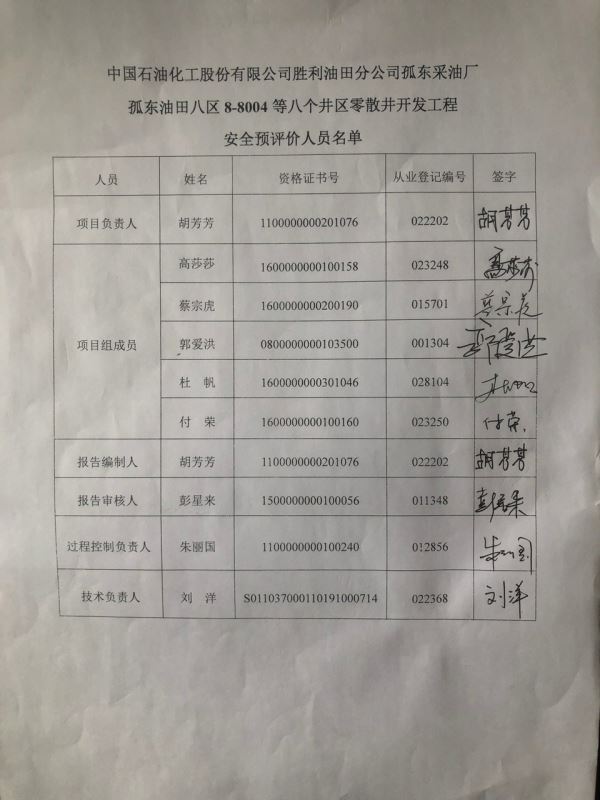 中国石油化工股份有限公司胜利油田分公司孤东采油厂
孤东油田八区 8-8004 等八个井区零散井开发工程
安全预评价人员名单
人员 姓名 资格证书号 从业登记编号 签字
项目负责人 胡芳芳 1100000000201076 022202 胡芳芳
项目组成员 高莎莎 1600000000100158 023248 高莎莎
蔡宗虎 1600000000200190 015701 蔡宗虎
郭爱洪 0800000000103500 001304 郭爱洪
杜 帆 1600000000301046 028104 杜帆
付 荣 1600000000100160 023250 付荣
报告编制人 胡芳芳 1100000000201076 022202 胡芳芳
报告审核人 彭星来 1500000000100056 011348 彭星来
过程控制负责人 朱丽国 1100000000100240 012856 朱丽国
技术负责人 刘 洋 S011037000110191000714 022368 刘洋